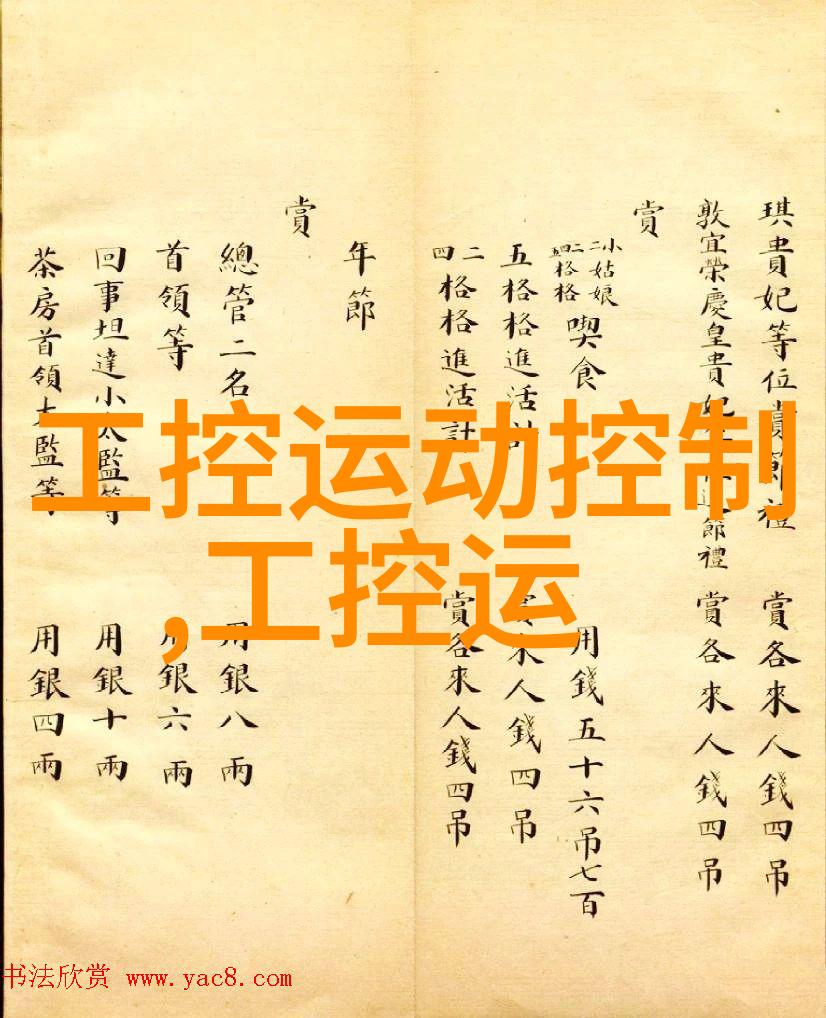 琪貴妃等位賞節禮 賞各來人錢四吊
敦宜榮慶皇貴妃節禮 賞各來人錢四吊
賞
小姑娘
格格
喫食 用錢五十六吊七百
五格格進活計 來人錢四吊
二四格格進活計 賞各來人錢四吊
年節
賞
總管二名 用銀八兩
首領等 用銀六兩
回事坦達小太監等 用銀十兩
茶房首領太監等 用銀四兩
工控运动控制
,工控运
书法欣赏 www.yac8.com